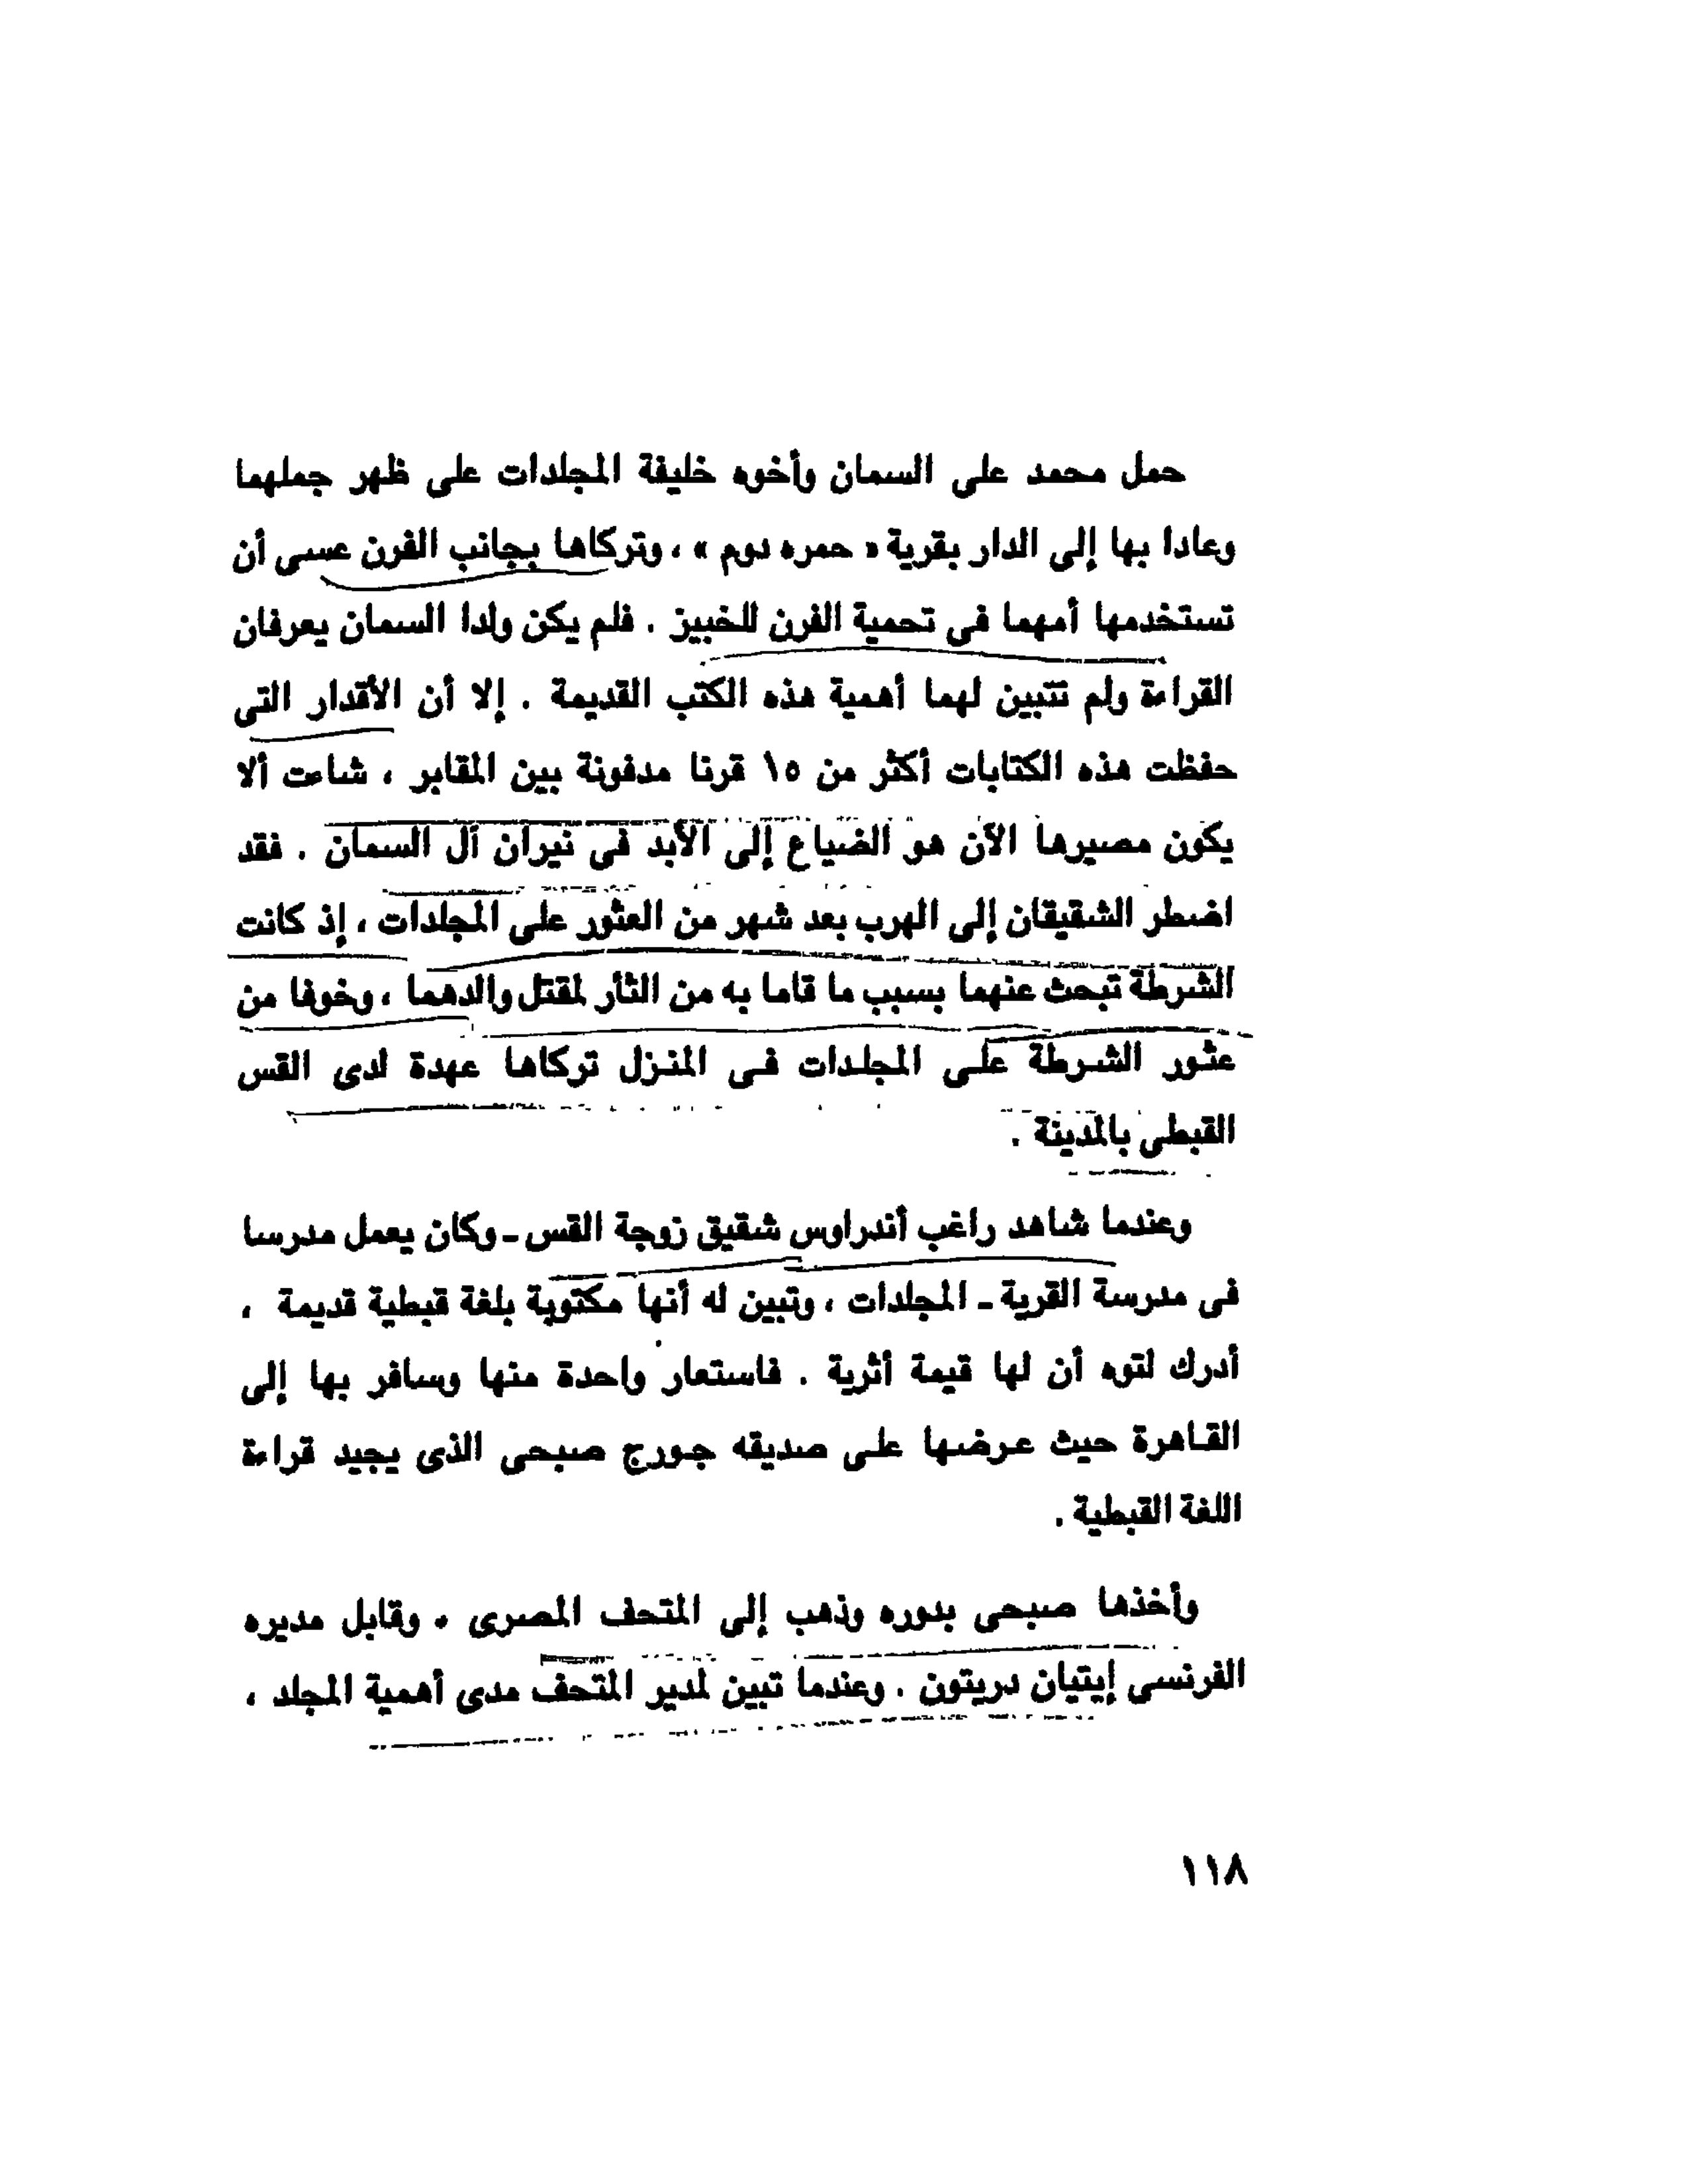 حمل محمد على السمان وأخوه خليفة المجلدات على ظهر جملهما
وعادا بها إلى الدار بقرية « حمره دوم » ، وتركاها بجانب الفرن عسى أن
تستخدمها أمهما فى تحمية الفرن للخبيز . فلم يكن ولدا السمان يعرفان
القراءة ولم تتبين لهما أهمية هذه الكتب القديمة . إلا أن الأقدار التى
حفظت هذه الكتابات أكثر من ١٥ قرنا مدفونة بين المقابر ، شاعت ألا
يكون مصيرها الآن هو الضياع إلى الأبد فى نيران آل السمان . فقد
اضطر الشقيقان إلى الهرب بعد شهر من العثور على المجلدات ، إذ كانت
الشرطة تبحث عنهما بسبب ما قاما به من الثأر لمقتل والدهما ، وخوفا من
عثور الشرطة على المجلدات فى المنزل تركاها عهدة لدى القس
القبطى بالمدينة .
وعندما شاهد راغب أندراوس شقيق زوجة القس ـ وكان يعمل مدرسا
فى مدرسة القرية ـ المجلدات ، وتبين له أنها مكتوبة بلغة قبطية قديمة ،
أدرك لتوه أن لها قيمة أثرية . فاستعار واحدة منها وسافر بها إلى
القاهرة حيث عرضها على صديقه جورج صبحى الذى يجيد قراءة
اللغة القبطية .
وأخذها صبحى بدوره وذهب إلى المتحف المصرى . وقابل مديره
الفرنسى إيتيان دريتون . وعندما تبين لمدير المتحف مدى أهمية المجلد ،
١١٨